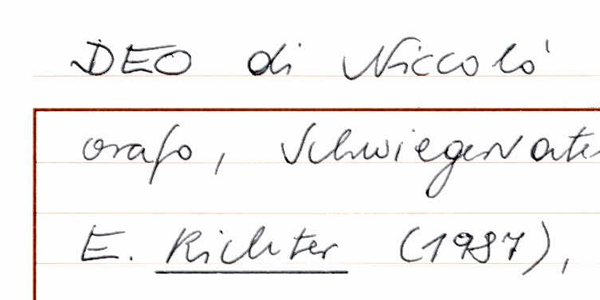 DEO di Niccolò
orafo, Schwiegervate
E. Richter (1987),